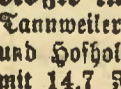 Tannweiler
und Hofhol
mit 14,7